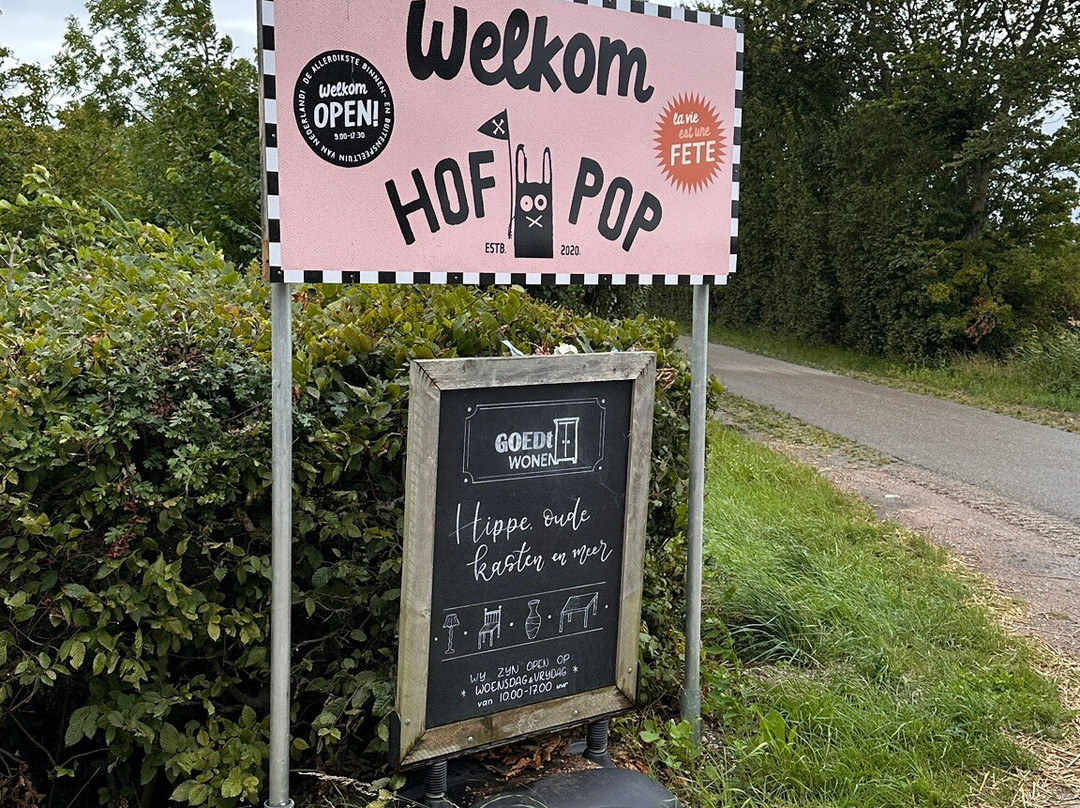 Welkom
DE ALLERDIKSTE BINNEN- EN BUITENSPEELTUIN VAN NEDERLAND!
Welkom
OPEN!
9.00-17.30
la vie
est une
FETE
HOF POP
ESTB. 2020.
GOEDt
WONEN
Hippe, oude
kasten en meer
WY ZYN OPEN OP:
* WOENSDAG & VRYDAG *
van 10.00-17.00 uur